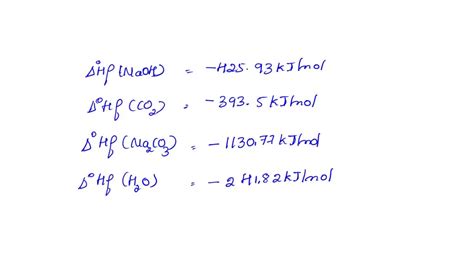 Δ°Hf (NaOH) = -425.93 kJ/mol
Δ°Hf (CO₂) = -393.5 kJ/mol
Δ°Hf (Na₂CO₃) = -1130.77 kJ/mol
Δ°Hf (H₂O) = -241.82 kJ/mol